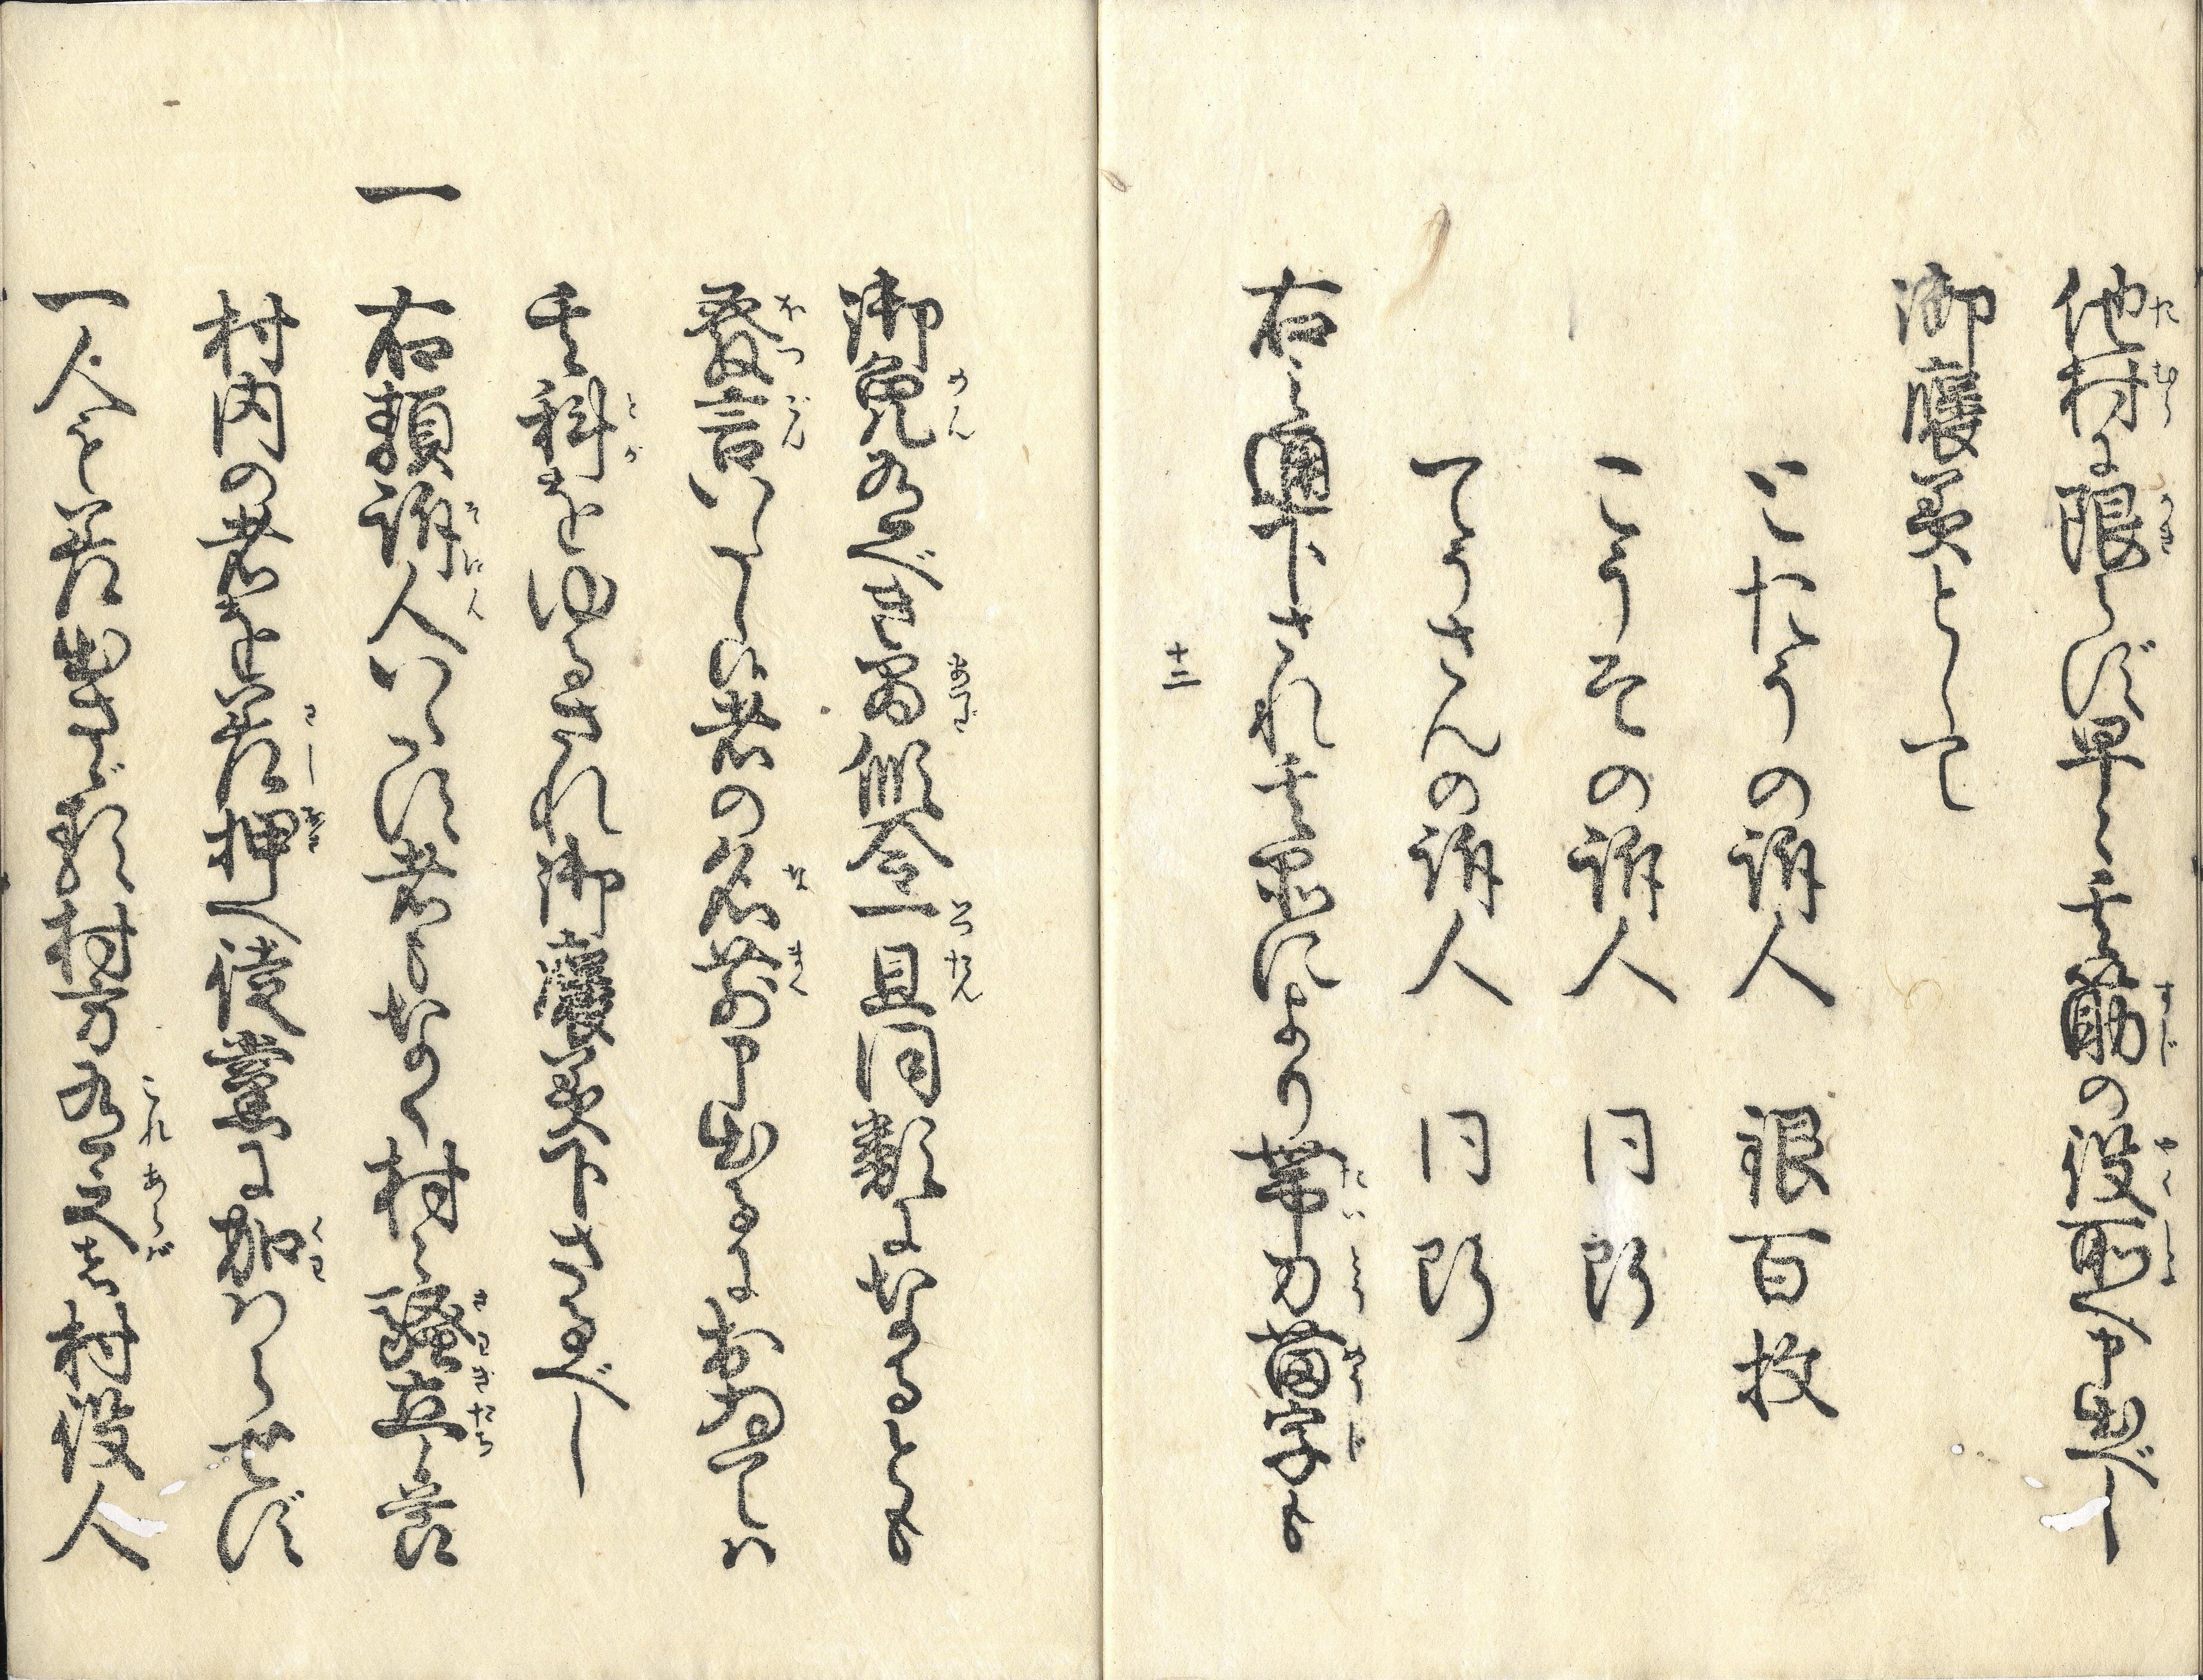 他村に限らず早々其筋の役所へ申出べし
御褒美として
ととうの訴人　銀百枚
こうその訴人　同断
てうさんの訴人　同断
右之通下され其品により帯刀苗字も
十二
御免有べき間仮令一旦同類になるとも
発言いたし候者の名前申出るにおゐてハ
其科をゆるされ御褒美下さるべし
一　右類訴人いたす者もなく村々騒立候節
村内の者を差押へ徒党に加ハらせず
一人も差出さゞる村方有之ば村役人